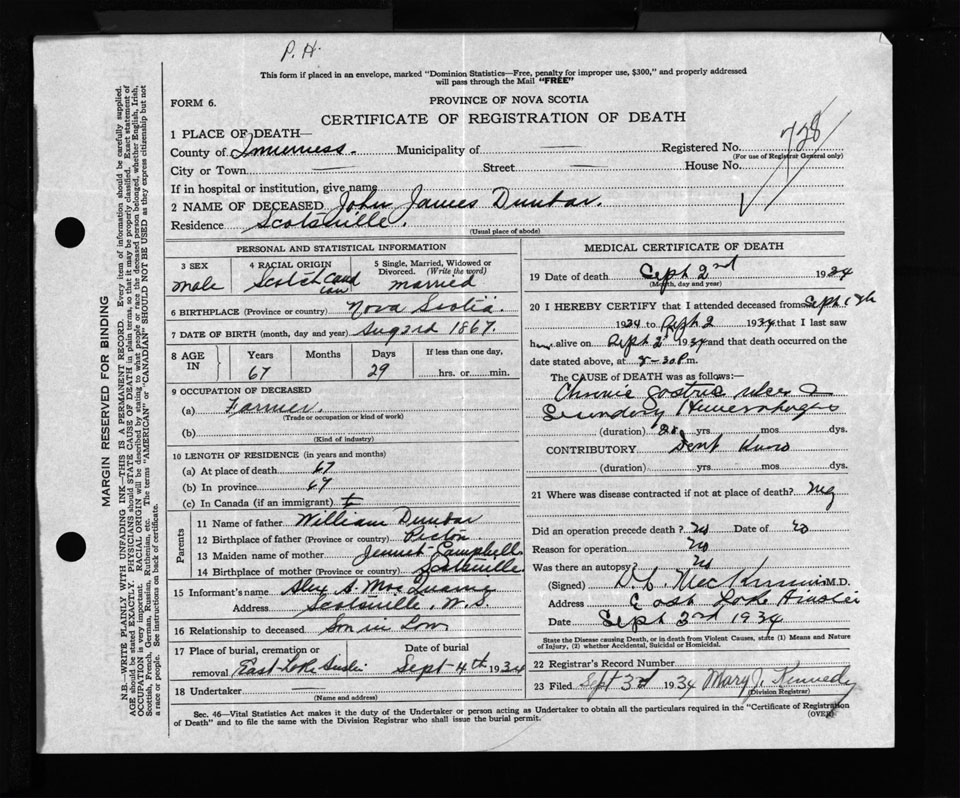 P. H.
This form if placed in an envelope, marked "Dominion Statistics—Free, penalty for improper use, $300," and properly addressed
will pass through the Mail "FREE"
FORM 6.
PROVINCE OF NOVA SCOTIA
CERTIFICATE OF REGISTRATION OF DEATH
728
1 PLACE OF DEATH—
County of Inverness. Municipality of — Registered No.
(For use of Registrar General only)
City or Town — Street — House No. —
If in hospital or institution, give name
2 NAME OF DECEASED John James Dunbar.
Residence Scotsville.
(Usual place of abode)
PERSONAL AND STATISTICAL INFORMATION
3 SEX
male
4 RACIAL ORIGIN
Scotch
5 Single, Married, Widowed or
Divorced. (Write the word)
married
6 BIRTHPLACE (Province or country) Nova Scotia
7 DATE OF BIRTH (month, day and year) Aug 3rd 1867.
8 AGE IN
Years Months Days If less than one day,
67 29 hrs. or min.
9 OCCUPATION OF DECEASED
(a) Farmer.
(Trade or occupation or kind of work)
(b)
(Kind of industry)
10 LENGTH OF RESIDENCE (in years and months)
(a) At place of death 67
(b) In province 67
(c) In Canada (if an immigrant)
Parents
11 Name of father William Dunbar
12 Birthplace of father (Province or country) Pictou
13 Maiden name of mother Campbell
14 Birthplace of mother (Province or country) Scotsville
15 Informant's name Alex A. MacQuarrie
Address Scotsville, N.S.
16 Relationship to deceased Son in Law
17 Place of burial, cremation or Date of burial
removal East Lake Ainslie Sept 4th 1934
18 Undertaker —
(Name and address)
MEDICAL CERTIFICATE OF DEATH
19 Date of death Sept 2nd 1934
(Month, day and year)
20 I HEREBY CERTIFY that I attended deceased from Sept
1934 to Sept 2 1934 that I last saw
him alive on Sept 2 1934 and that death occurred on the
date stated above, at 8-30 P.m.
The CAUSE OF DEATH was as follows:—
Chronic gastric ulcer
Secondary Hemorrhages
(duration) yrs. mos. dys.
CONTRIBUTORY Dont Know
(duration) yrs. mos. dys.
21 Where was disease contracted if not at place of death?
Did an operation precede death? no Date of no
Reason for operation no
Was there an autopsy? no
(Signed) M.D.
Address East Lake Ainslie
Date Sept 3rd 1934
State the Disease causing Death, or in death from Violent Causes, state (1) Means and Nature
of Injury, (2) whether Accidental, Suicidal or Homicidal.
22 Registrar's Record Number
23 Filed Sept 3d 1934 Mary J. Kennedy
(Division Registrar)
Sec. 46—Vital Statistics Act makes it the duty of the Undertaker or person acting as Undertaker to obtain all the particulars required in the "Certificate of Registration
of Death" and to file the same with the Division Registrar who shall issue the burial permit.
(OVER)
MARGIN RESERVED FOR BINDING
N.B.—WRITE PLAINLY WITH UNFADING INK—THIS IS A PERMANENT RECORD. Every item of information should be carefully supplied.
AGE should be stated EXACTLY. PHYSICIANS should STATE CAUSE OF DEATH in plain terms, so that it may be properly classified. Exact statement of
OCCUPATION is very important. RACIAL ORIGIN will be described by stating to what people or race the deceased person belonged, whether English, Irish,
Scottish, French, German, Russian, Ruthenian, etc. The terms "AMERICAN" or "CANADIAN" SHOULD NOT BE USED as they express citizenship but not
a race or people. See instructions on back of certificate.